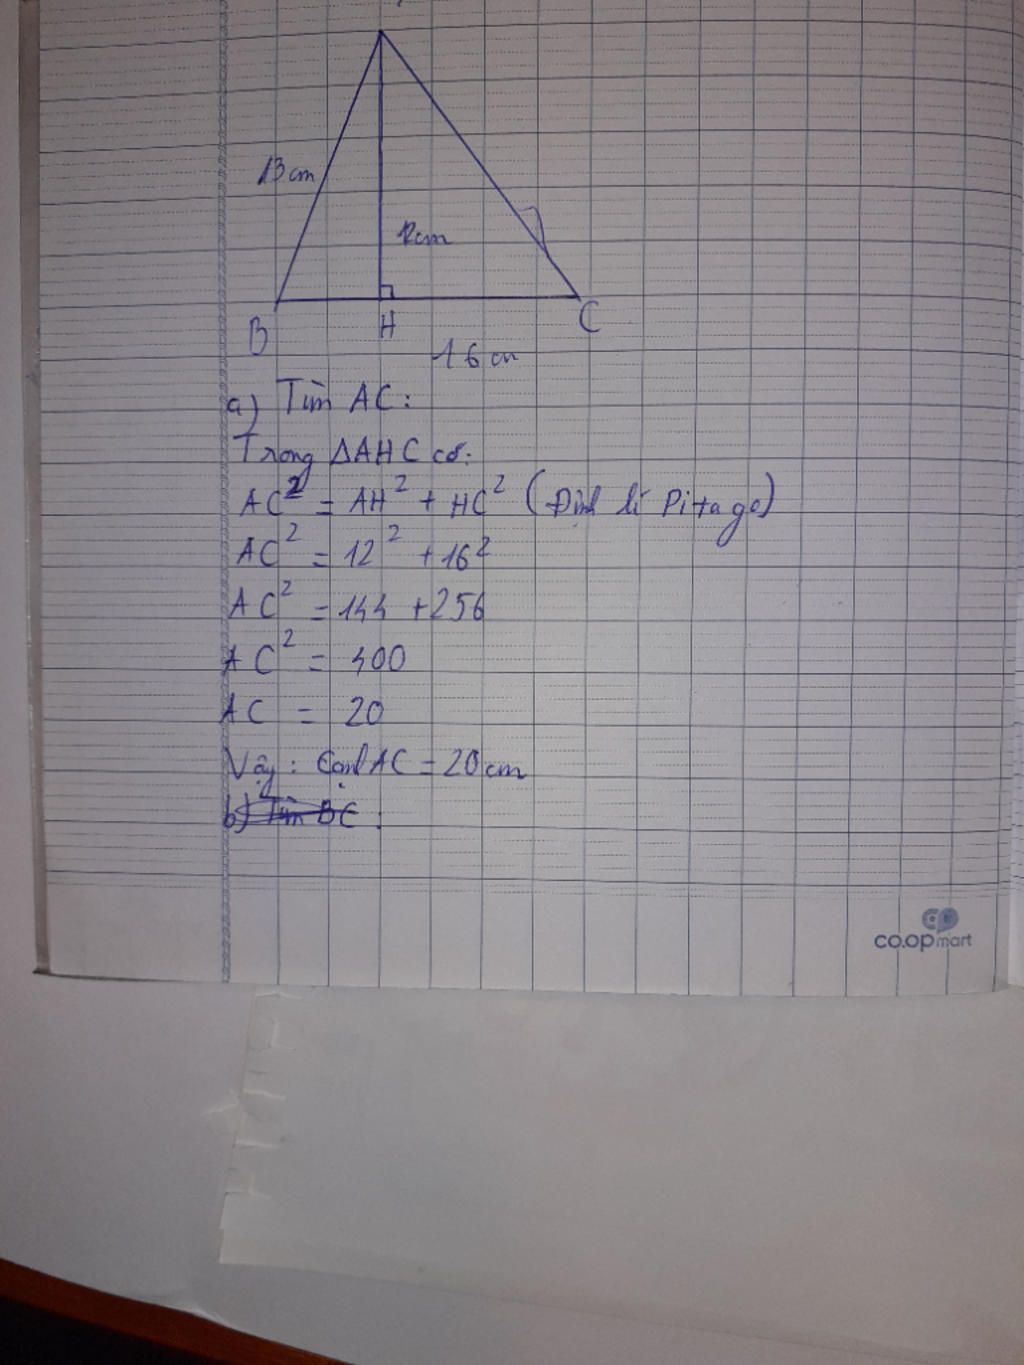 13cm
12cm
B
H
C
16cm
a) Tìm AC:
Trong ΔAHC có:
AC² = AH² + HC² (Định lí Pitago)
AC² = 12² + 16²
AC² = 144 + 256
AC² = 400
AC = 20
Vậy: Cạnh AC = 20cm
b) Tìm BC:
co.opmart